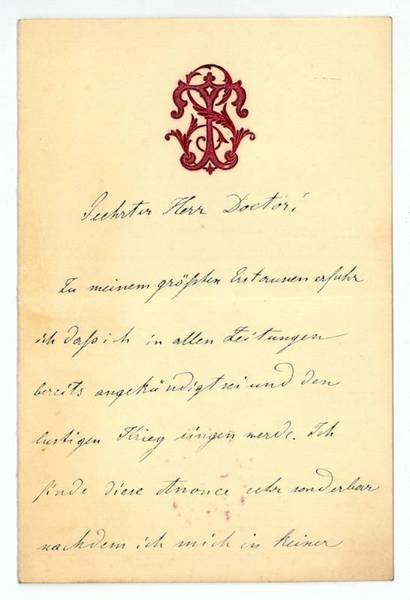 Geehrter Herr Doctor!
Zu meinem größten Erstaunen erfuhr
ich daß ich in allen Zeitungen
bereits angekündigt sei und den
lustigen Krieg singen werde. Ich
finde diese Anonce sehr sonderbar
nachdem ich mich in keiner